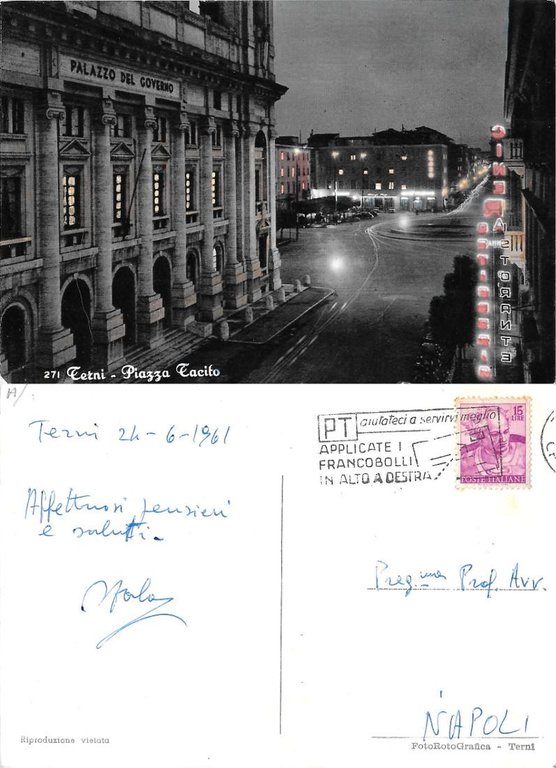 PALAZZO DEL GOVERNO
RISTORANTE
271 Terni - Piazza Tacito
Terni 24-6-1961
Affettuosi pensieri
e saluti.
PT aiutateci a servirvi meglio
APPLICATE I
FRANCOBOLLI
IN ALTO A DESTRA
15
LIRE
POSTE ITALIANE
Preg.mo Prof. Avv.
NAPOLI
Riproduzione vietata
FotoRotoGrafica - Terni